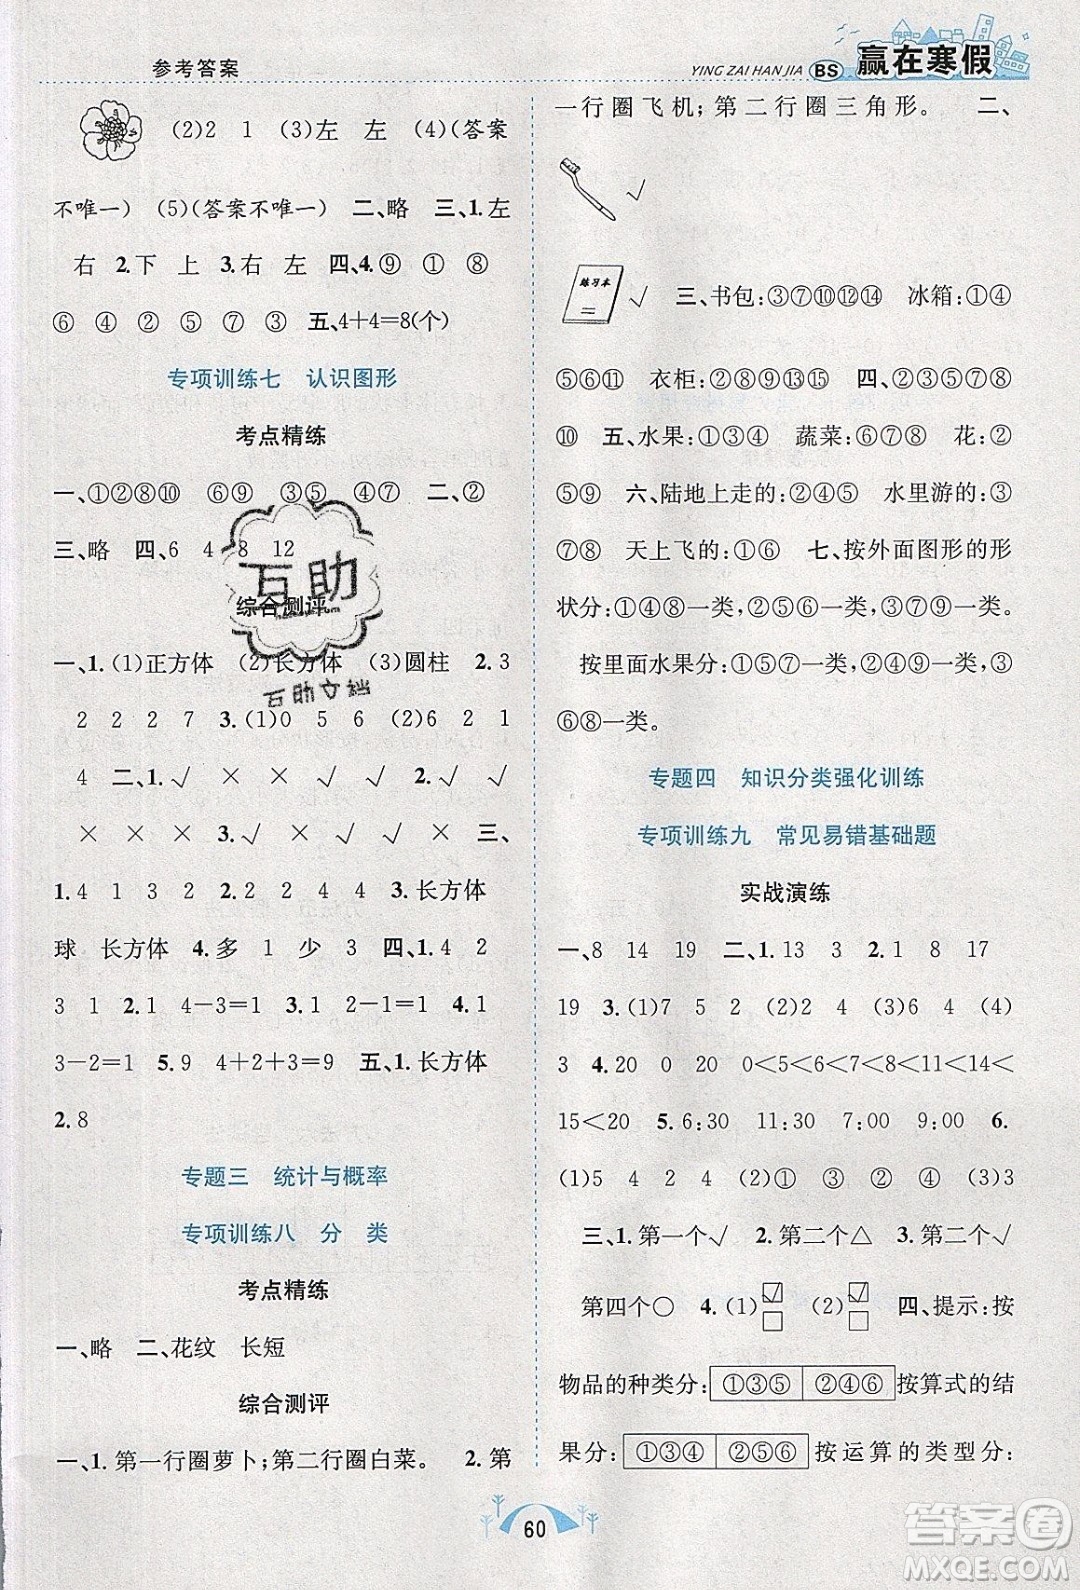 参考答案
YING ZAI HAN JIA BS 赢在寒假
(2)2 1 (3)左 左 (4)(答案
不唯一) (5)(答案不唯一) 二、略 三、1.左
右 2.下 上 3.右 左 四、4.⑨ ① ⑧
⑥ ④ ② ⑤ ⑦ ③ 五、4+4=8(个)
专项训练七 认识图形
考点精练
一、①②⑧⑩ ⑥⑨ ③⑤ ④⑦ 二、②
三、略 四、6 4 8 12
综合测评
一、1.(1)正方体 (2)长方体 (3)圆柱 2.3
2 2 2 7 3.(1)0 5 6 (2)6 2 1
4 二、1.√ × × √ 2.√ √
× × × 3.√ √ × √ 三、
1.4 1 3 2 2.2 4 4 3.长方体
球 长方体 4.多 1 少 3 四、1.4 2
3 1 2.1 4-3=1 3.1 4.1
3-2=1 5.9 4+2+3=9 五、1.长方体
2.8
专题三 统计与概率
专项训练八 分 类
考点精练
一、略 二、花纹 长短
综合测评
一、1.第一行圈萝卜;第二行圈白菜。 2.第
一行圈飞机;第二行圈三角形。 二、
√
练习本 √ 三、书包:③⑦⑩⑫⑭ 冰箱:①④
⑤⑥⑪ 衣柜:②⑧⑨⑬ 四、①③⑤⑦⑧
⑩ 五、水果:①③④ 蔬菜:⑥⑦⑧ 花:②
⑤⑨ 六、陆地上走的:②④⑨ 水里游的:③
⑦⑧ 天上飞的:①⑤⑥ 七、按外面图形的形
状分:①④⑧一类,②⑤⑥一类,③⑦⑨一类。
按里面水果分:①⑤⑦一类,②④⑨一类,③
⑥⑧一类。
专题四 知识分类强化训练
专项训练九 常见易错基础题
实战演练
一、8 14 19 二、1.13 3 2.1 8 17
19 3.(1)7 5 2 (2)2 (3)6 2 (4)
3 4.20 0 20 0<5<6<7<8<
15<20 5.6:30 7:00 9:00 6.
(1)5 4 2 4 (2)① ① ② (3)3
三、1.第一个√ 2.第二个△ 3.第二个√
第四个○ 4.(1)☑□ (2)☑□ 四、提示:按
物品的种类分: ①③⑤ ②④⑥ 按算式的结
果分: ①③④ ②⑤⑥ 按运算的类型分:
互助
互助文档
60
答案圈
MXQE.COM